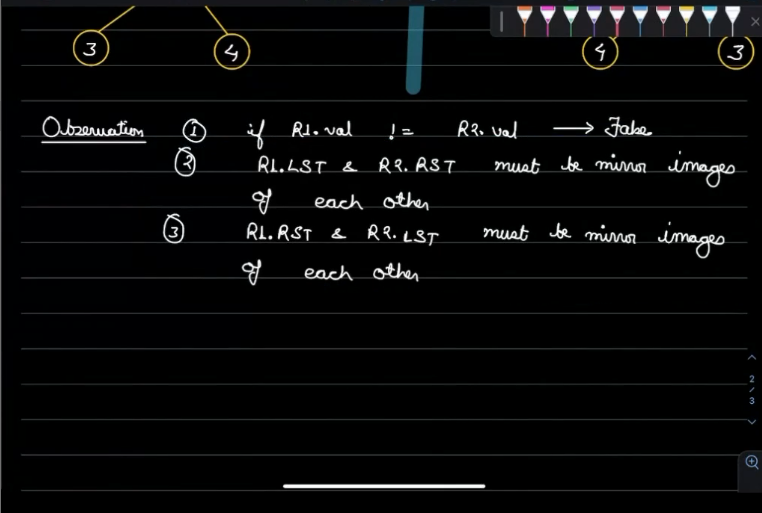 3 4 4 3
Observation ① if R1.val != R2.val → False
② R1.LST & R2.RST must be mirror images
of each other
③ R1.RST & R2.LST must be mirror images
of each other
2
/
3